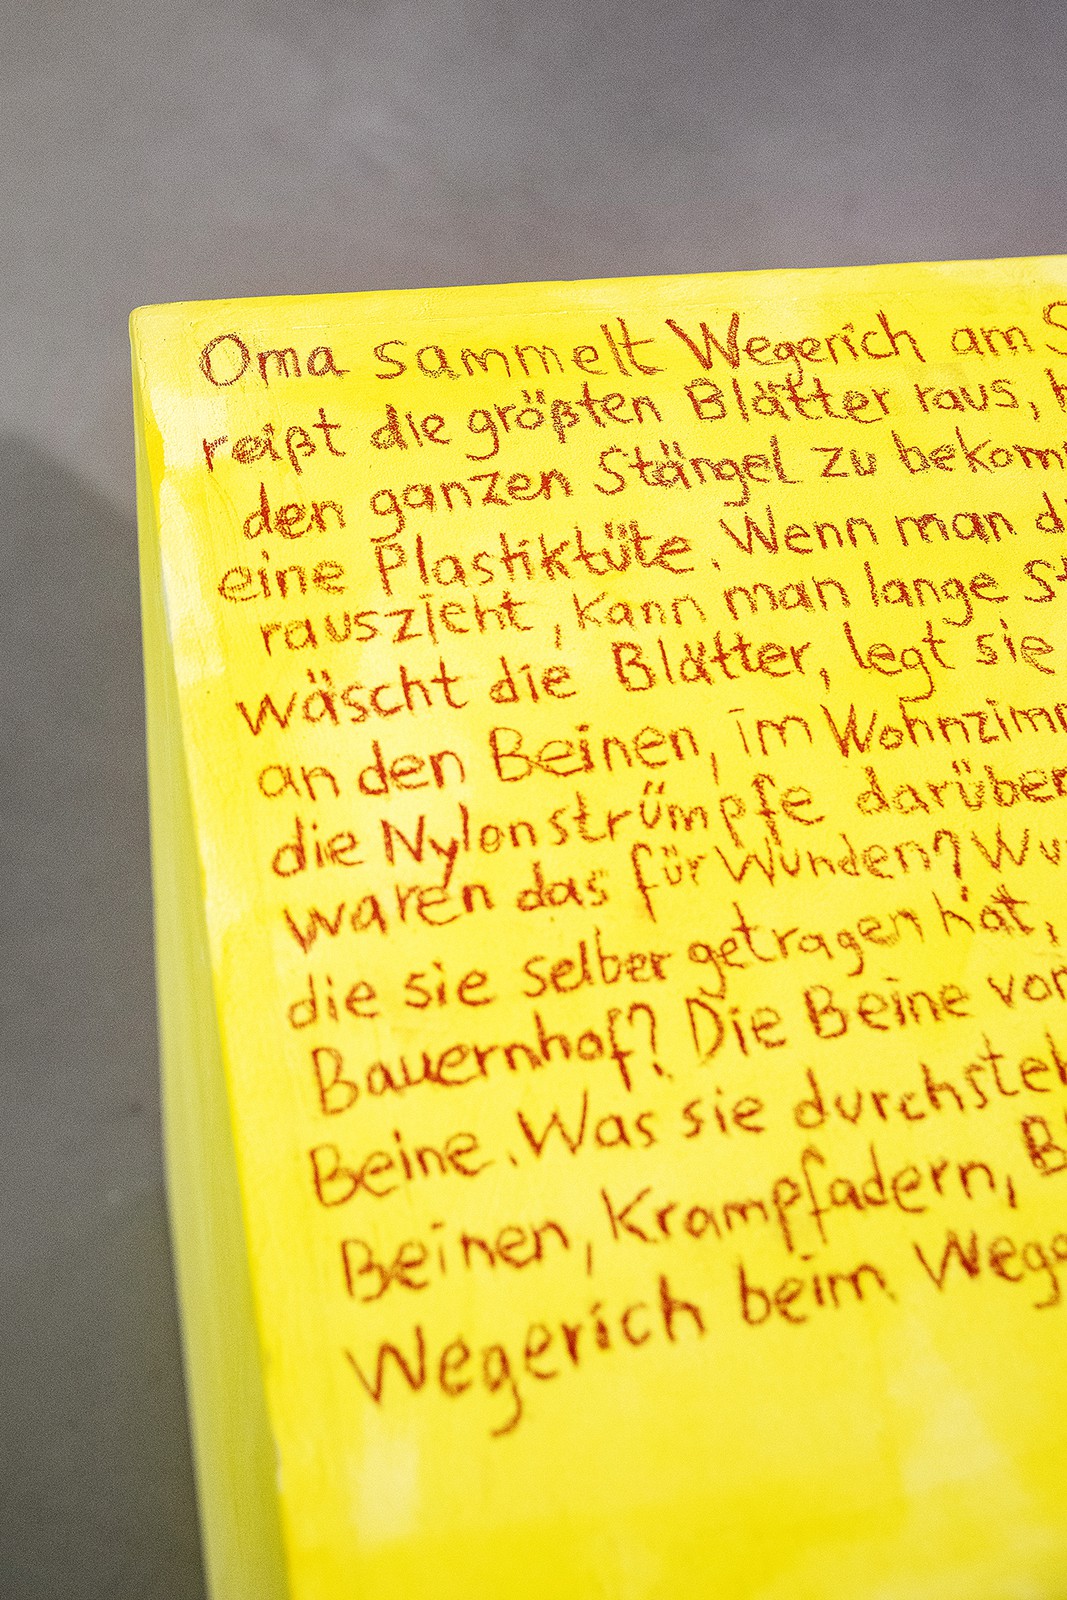 Oma sammelt Wegerich am S
reißt die größten Blätter raus,
den ganzen Stängel zu bekom
eine Plastiktüte. Wenn man d
rauszieht, kann man lange St
wäscht die Blätter, legt sie
an den Beinen, im Wohnzim
die Nylonstrümpfe darüber
waren das für Wunden? Wu
die sie selber getragen hat,
Bauernhof? Die Beine vo
Beine. Was sie durchste
Beinen, Krampfadern, B
Wegerich beim Wege